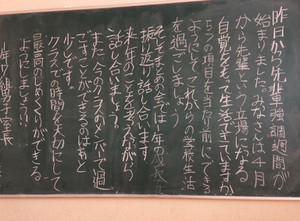 昨日から先輩強調週間が
始まりました。みなさんは4月
から先輩という立場になる
自覚をもって生活できていますか
5つの項目を当たり前にできる
ようにして、これからの学校生活
を過ごしましょう
そしてまとめの会では1年の成長を
振り返り話し合います
来年のことを考えながら
話し合いましょう。
また、今のクラスのメンバーで過
ごすことができるのはあと
少しです。
クラスでの時間を大切にして
最高のしめくくりができる
ようにしましょう!!
室長